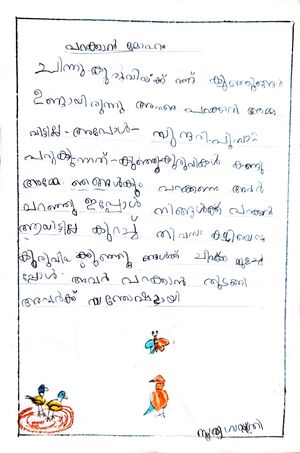 പറക്കാൻ മോഹം
ചിന്നുകുരുവിയ്ക്ക് രണ്ട് കുഞ്ഞുങ്ങൾ
ഉണ്ടായിരുന്നു അവരെ പറക്കാൻ അമ്മ
വിട്ടില്ല. അപ്പോൾ സുന്ദരി പൂമ്പാറ്റ
പറക്കുന്നത് കുഞ്ഞുകുരുവികൾ കണ്ടു
അമ്മേ ഞങ്ങൾക്കും പറക്കണം അവർ
പറഞ്ഞു ഇപ്പോൾ നിങ്ങൾക്ക് പറക്കാൻ
ആയിട്ടില്ല കുറച്ച് ദിവസം കഴിയട്ടെ
കുരുവികുഞ്ഞുങ്ങൾക്ക് ചിറക് മുളച്ച
പ്പോൾ അവർ പറക്കാൻ തുടങ്ങി
അവർക്ക് സന്തോഷമായി